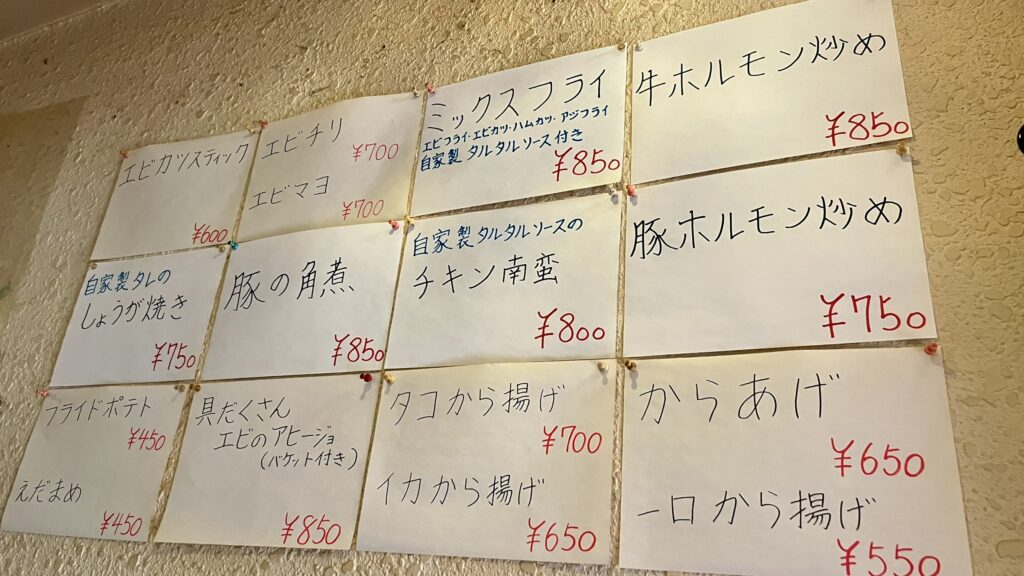 エビカツスティック
¥600
エビチリ
¥700
エビマヨ
¥700
ミックスフライ
エビフライ・エビカツ・ハムカツ・アジフライ
自家製タルタルソース付き
¥850
牛ホルモン炒め
¥850
自家製タレの
しょうが焼き
¥750
豚の角煮
¥850
自家製タルタルソースの
チキン南蛮
¥800
豚ホルモン炒め
¥750
フライドポテト
¥450
えだまめ
¥450
具だくさん
エビのアヒージョ
(バケット付き)
¥850
タコから揚げ
¥700
イカから揚げ
¥650
からあげ
¥650
一口から揚げ
¥550